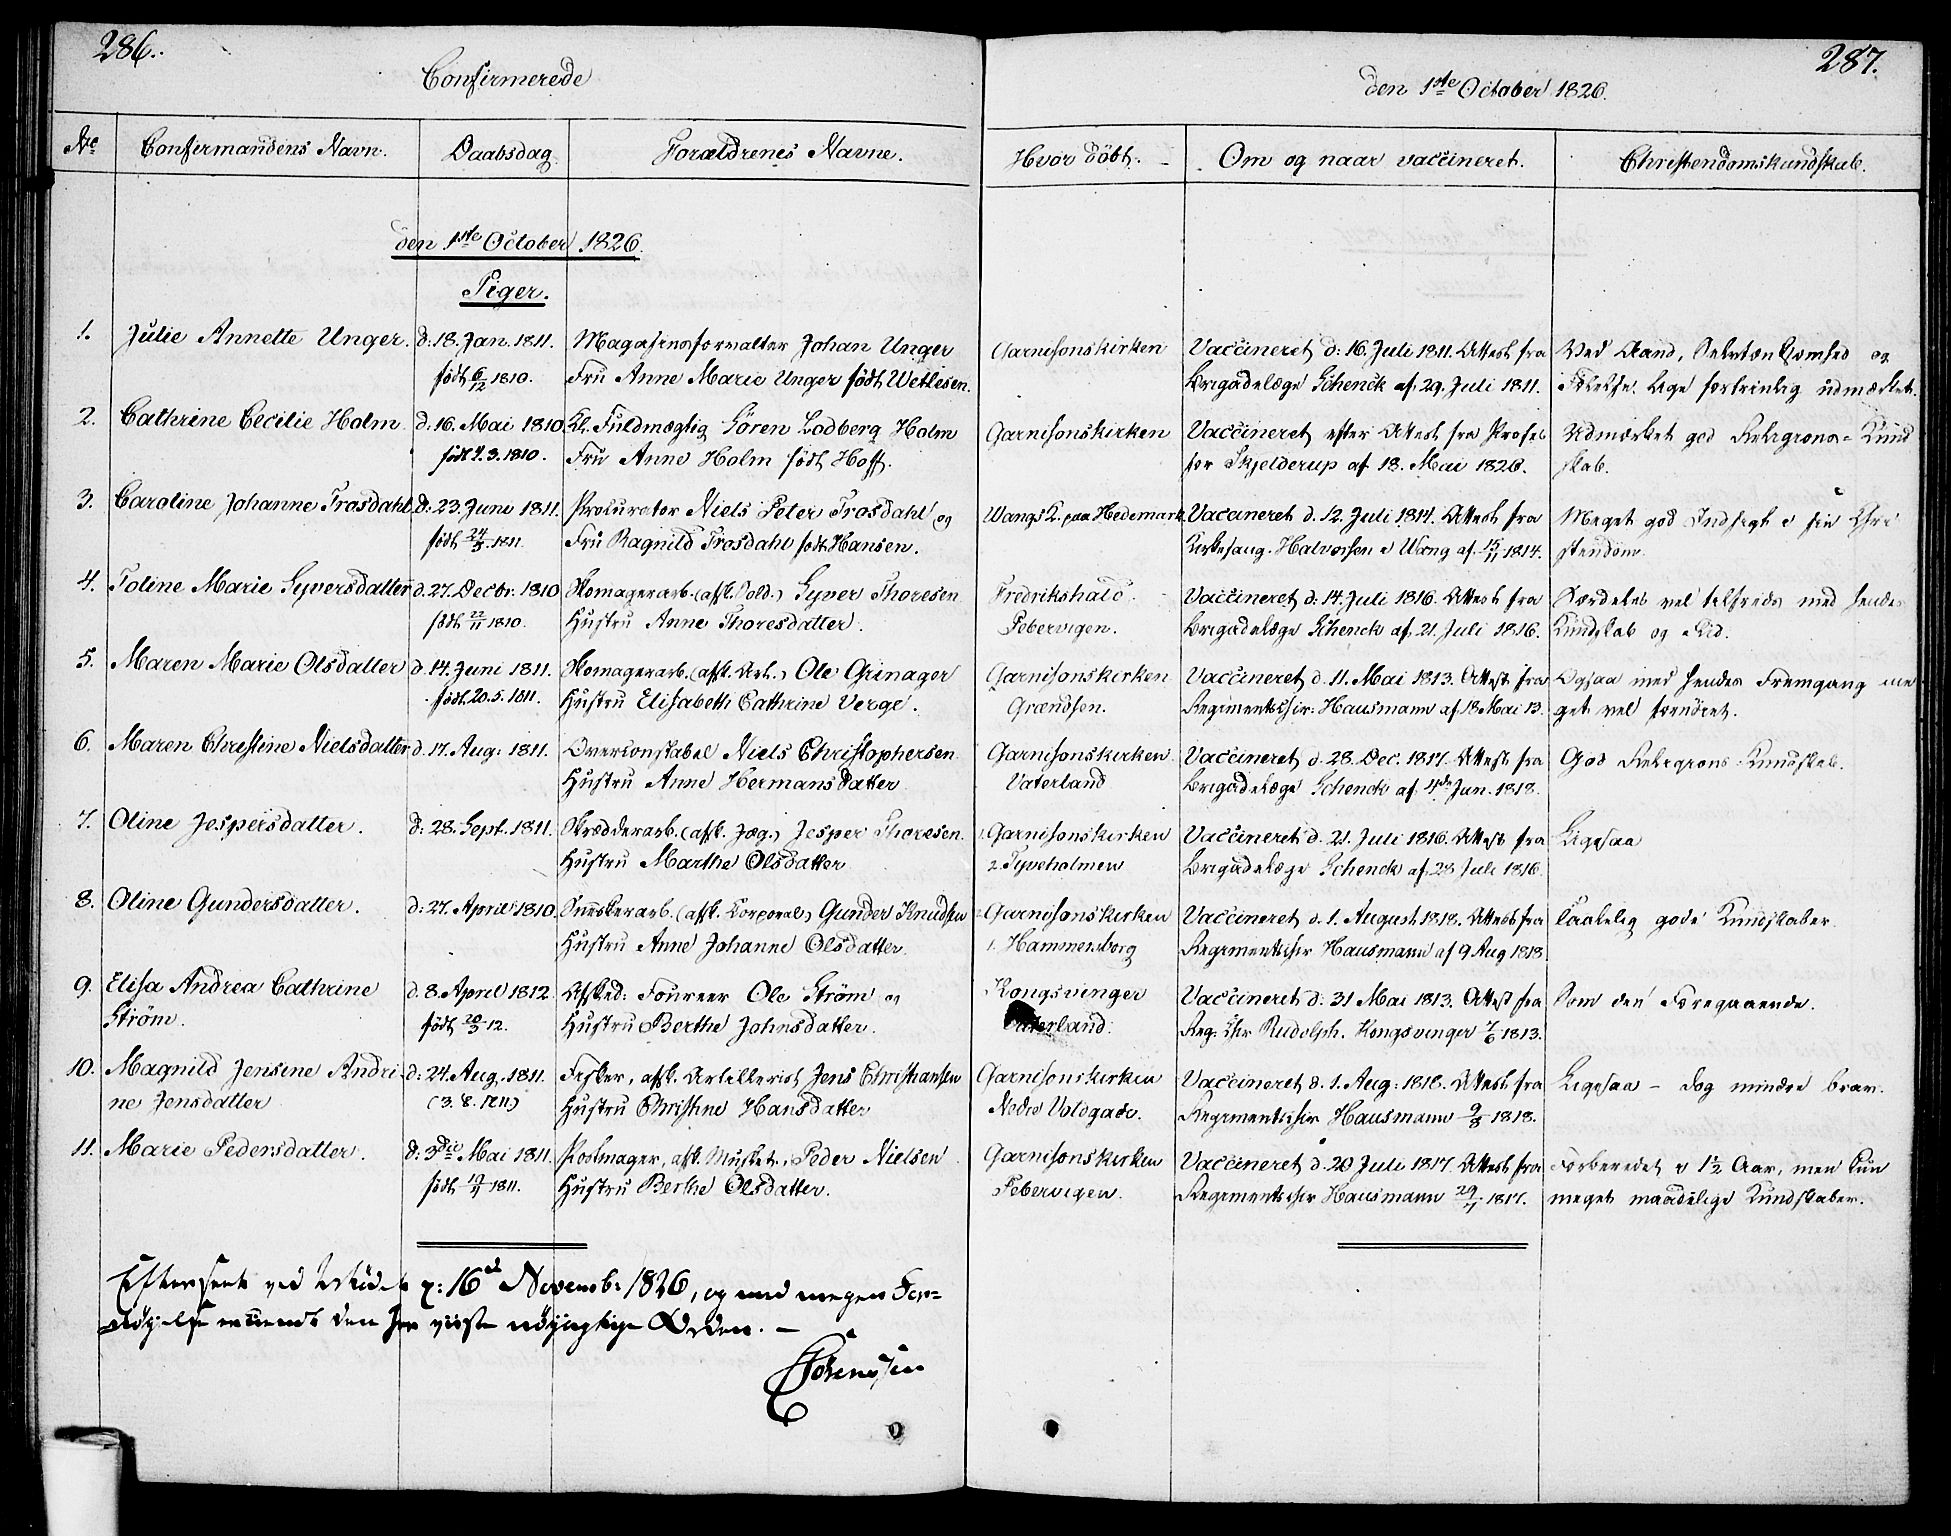 286.
Confirmerede
No
Confirmandens Navn.
Daabsdag.
Forældrenes Navne.
den 1ste October 1826.
Piger.
1. Julie Annette Unger. d: 18. Jan. 1811. Magasinsforvalter Johan Unger
født 6/12 1810. Fru Anne Marie Unger født Wetlesen.
2. Cathrine Cecilie Holm d: 16. Mai 1810. Kl. Fuldmægtig Sören Lodberg Holm
født 4. 3. 1810. Fru Anne Holm født Hoff.
3. Caroline Johanne Trosdahl. d: 23. Juni 1811. Procurator Niels Peter Trosdahl og
født 24/5 1811. Fru Ragnild Trosdahl født Hansen.
4. Toline Marie Syversdatter d. 27. Decbr. 1810 Skomagerarb. (afsk. Sold.) Syver Thoresen
født 22/11 1810. Hustru Anne Thoresdatter.
5. Maren Marie Olsdatter d. 14. Juni 1811. Skomagerarb. (afsk. Art.) Ole Grinager
født 20. 5. 1811. Hustru Elisabeth Cathrine Verge.
6. Maren Christine Nielsdatter d. 17. Aug: 1811. Overconstabel Niels Christophersen
Hustru Anne Hermansdatter
7. Oline Jespersdatter. d: 28. Sept. 1811. Skrædderarb. (afsk. Jæg.) Jesper Thoresen.
Hustru Marthe Olsdatter
8. Oline Gundersdatter. d: 27. April 1810. Snedkerarb. (afsk. Corporal) Gunder Knudsen
Hustru Anne Johanne Olsdatter.
9. Elisa Andrea Cathrine d. 8. April 1812 Afsked: Foureer Ole Ström og
Ström. født 20/3 12. Hustru Berthe Johnsdatter.
10. Magnild Jensine Andri- d: 24. Aug. 1811. Fisker, afsk. Artillerist Jens Christiansen
ne Jensdatter (3. 8. 1811) Hustru Christine Hansdatter
11. Marie Pedersdatter. d: 3die Mai 1811. Postmager, afsk. Musket. Peder Nielsen
født 19/4 1811. Hustru Berthe Olsdatter.
Efterseet ved d: 16de Novemb: 1826, og med megen For-
nöyelse erkiendt den her viiste nöyagtige Orden. —
Sörenssen
287.
den 1ste October 1826.
Hvor döbt.
Om og naar vaccineret.
Christendomskundskab.
Garnisonskirken Vaccineret d: 16. Juli 1811. Attest fra Ved Aand, Selvtænksomhed og
Brigadelæge Schenck af 29. Juli 1811. Følelse lige fortrinlig udmærket.
Garnisonskirken Vaccineret efter Attest fra Profes Udmærket god Religions-Kund
sor Skjelderup af 18. Mai 1826. skab.
Wangs K. paa Hedemark. Vaccineret d. 12. Juli 1814. Attest fra Meget god Indsigt i sin Chri
Kirkesang. Halvorsen i Wang af 15/11 1814. stendom.
Fredrikshald. Vaccineret d: 14. Juli 1816. Attest fra Særdeles vel tilfreds med hendes
Pebervigen. Brigadelæge Schenck af 21. Juli 1816. Kundskab og Flid.
Garnisonskirken Vaccineret d. 11. Mai 1813. Attest fra Ogsaa med hendes Fremgang me
Grændsen. Regimentschir: Hausmann af 18 Mai 13. get vel fornöiet.
Garnisonskirken Vaccineret d. 28. Dec. 1817. Attest fra God Religions-Kundskab.
Vaterland Brigadelæge Schenck af 4de Jan. 1818.
1. Garnisonskirken Vaccineret d. 21. Juli 1816. Attest fra Ligesaa
2. Tyveholmen Brigadelæge Schenck af 28 Juli 1816.
Garnisonskirken Vaccineret d. 1. August 1818. Attest fra Taalelig gode Kundskaber.
1. Hammersborg Regimentschir Hausmann af 9 Aug 1818.
Kongsvinger Vaccineret d: 31 Mai 1813. Attest fra Som den Foregaaende.
Vaterland. Reg. Chir Rudolph. Kongsvinger 7/6 1813.
Garnisonskirken Vaccineret d. 1. Aug: 1818. Attest fra Ligesaa – dog mindre brav.
Nedre Voldgade. Regimentschir Hausmann 9/8 1818.
Garnisonskirken Vaccineret d. 20 Juli 1817. Attest fra Forberedet i 1½ Aar, men kun
Pebervigen. Regimentschir Hausmann 29/7 1817. meget maadelige Kundskaber.